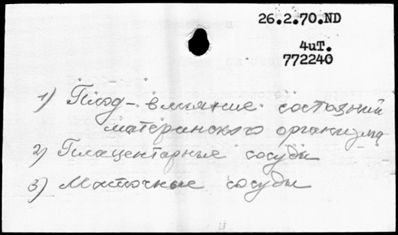 26.2.70.ND
4иТ.
772240
1) Плод - влияние состояний
материнского организма
2) Плацентарные сосуды
3) Маточные сосуды